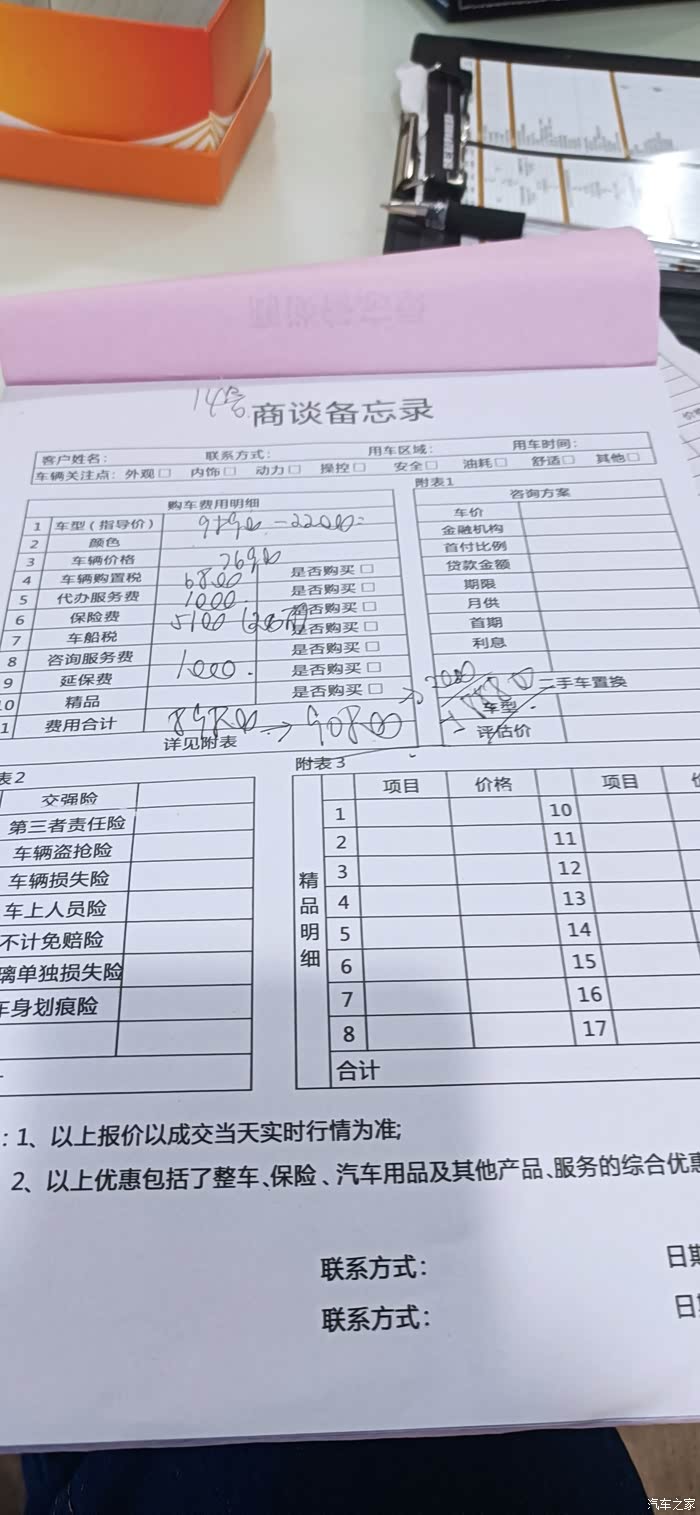 14号
商谈备忘录
客户姓名： 联系方式： 用车区域： 用车时间：
车辆关注点：外观□ 内饰□ 动力□ 操控□ 安全□ 油耗□ 舒适□ 其他□
购车费用明细
1 车型（指导价） 98900-22000
2 颜色
3 车辆价格 76900
4 车辆购置税 6800 是否购买□
5 代办服务费 1000 是否购买□
6 保险费 5100 是否购买□
7 车船税 是否购买□
8 咨询服务费 1000 是否购买□
9 延保费 是否购买□
10 精品 是否购买□
费用合计 → 90800
详见附表
附表1
咨询方案
车价
金融机构
首付比例
贷款金额
期限
月供
首期
利息
2000
二手车置换
车型
评估价
表2
交强险
第三者责任险
车辆盗抢险
车辆损失险
车上人员险
不计免赔险
璃单独损失险
车身划痕险
附表3
精品明细
项目 价格 项目
1 10
2 11
3 12
4 13
5 14
6 15
7 16
8 17
合计
：1、以上报价以成交当天实时行情为准;
2、以上优惠包括了整车、保险、汽车用品及其他产品、服务的综合优惠
联系方式： 日期
联系方式： 日期
汽车之家